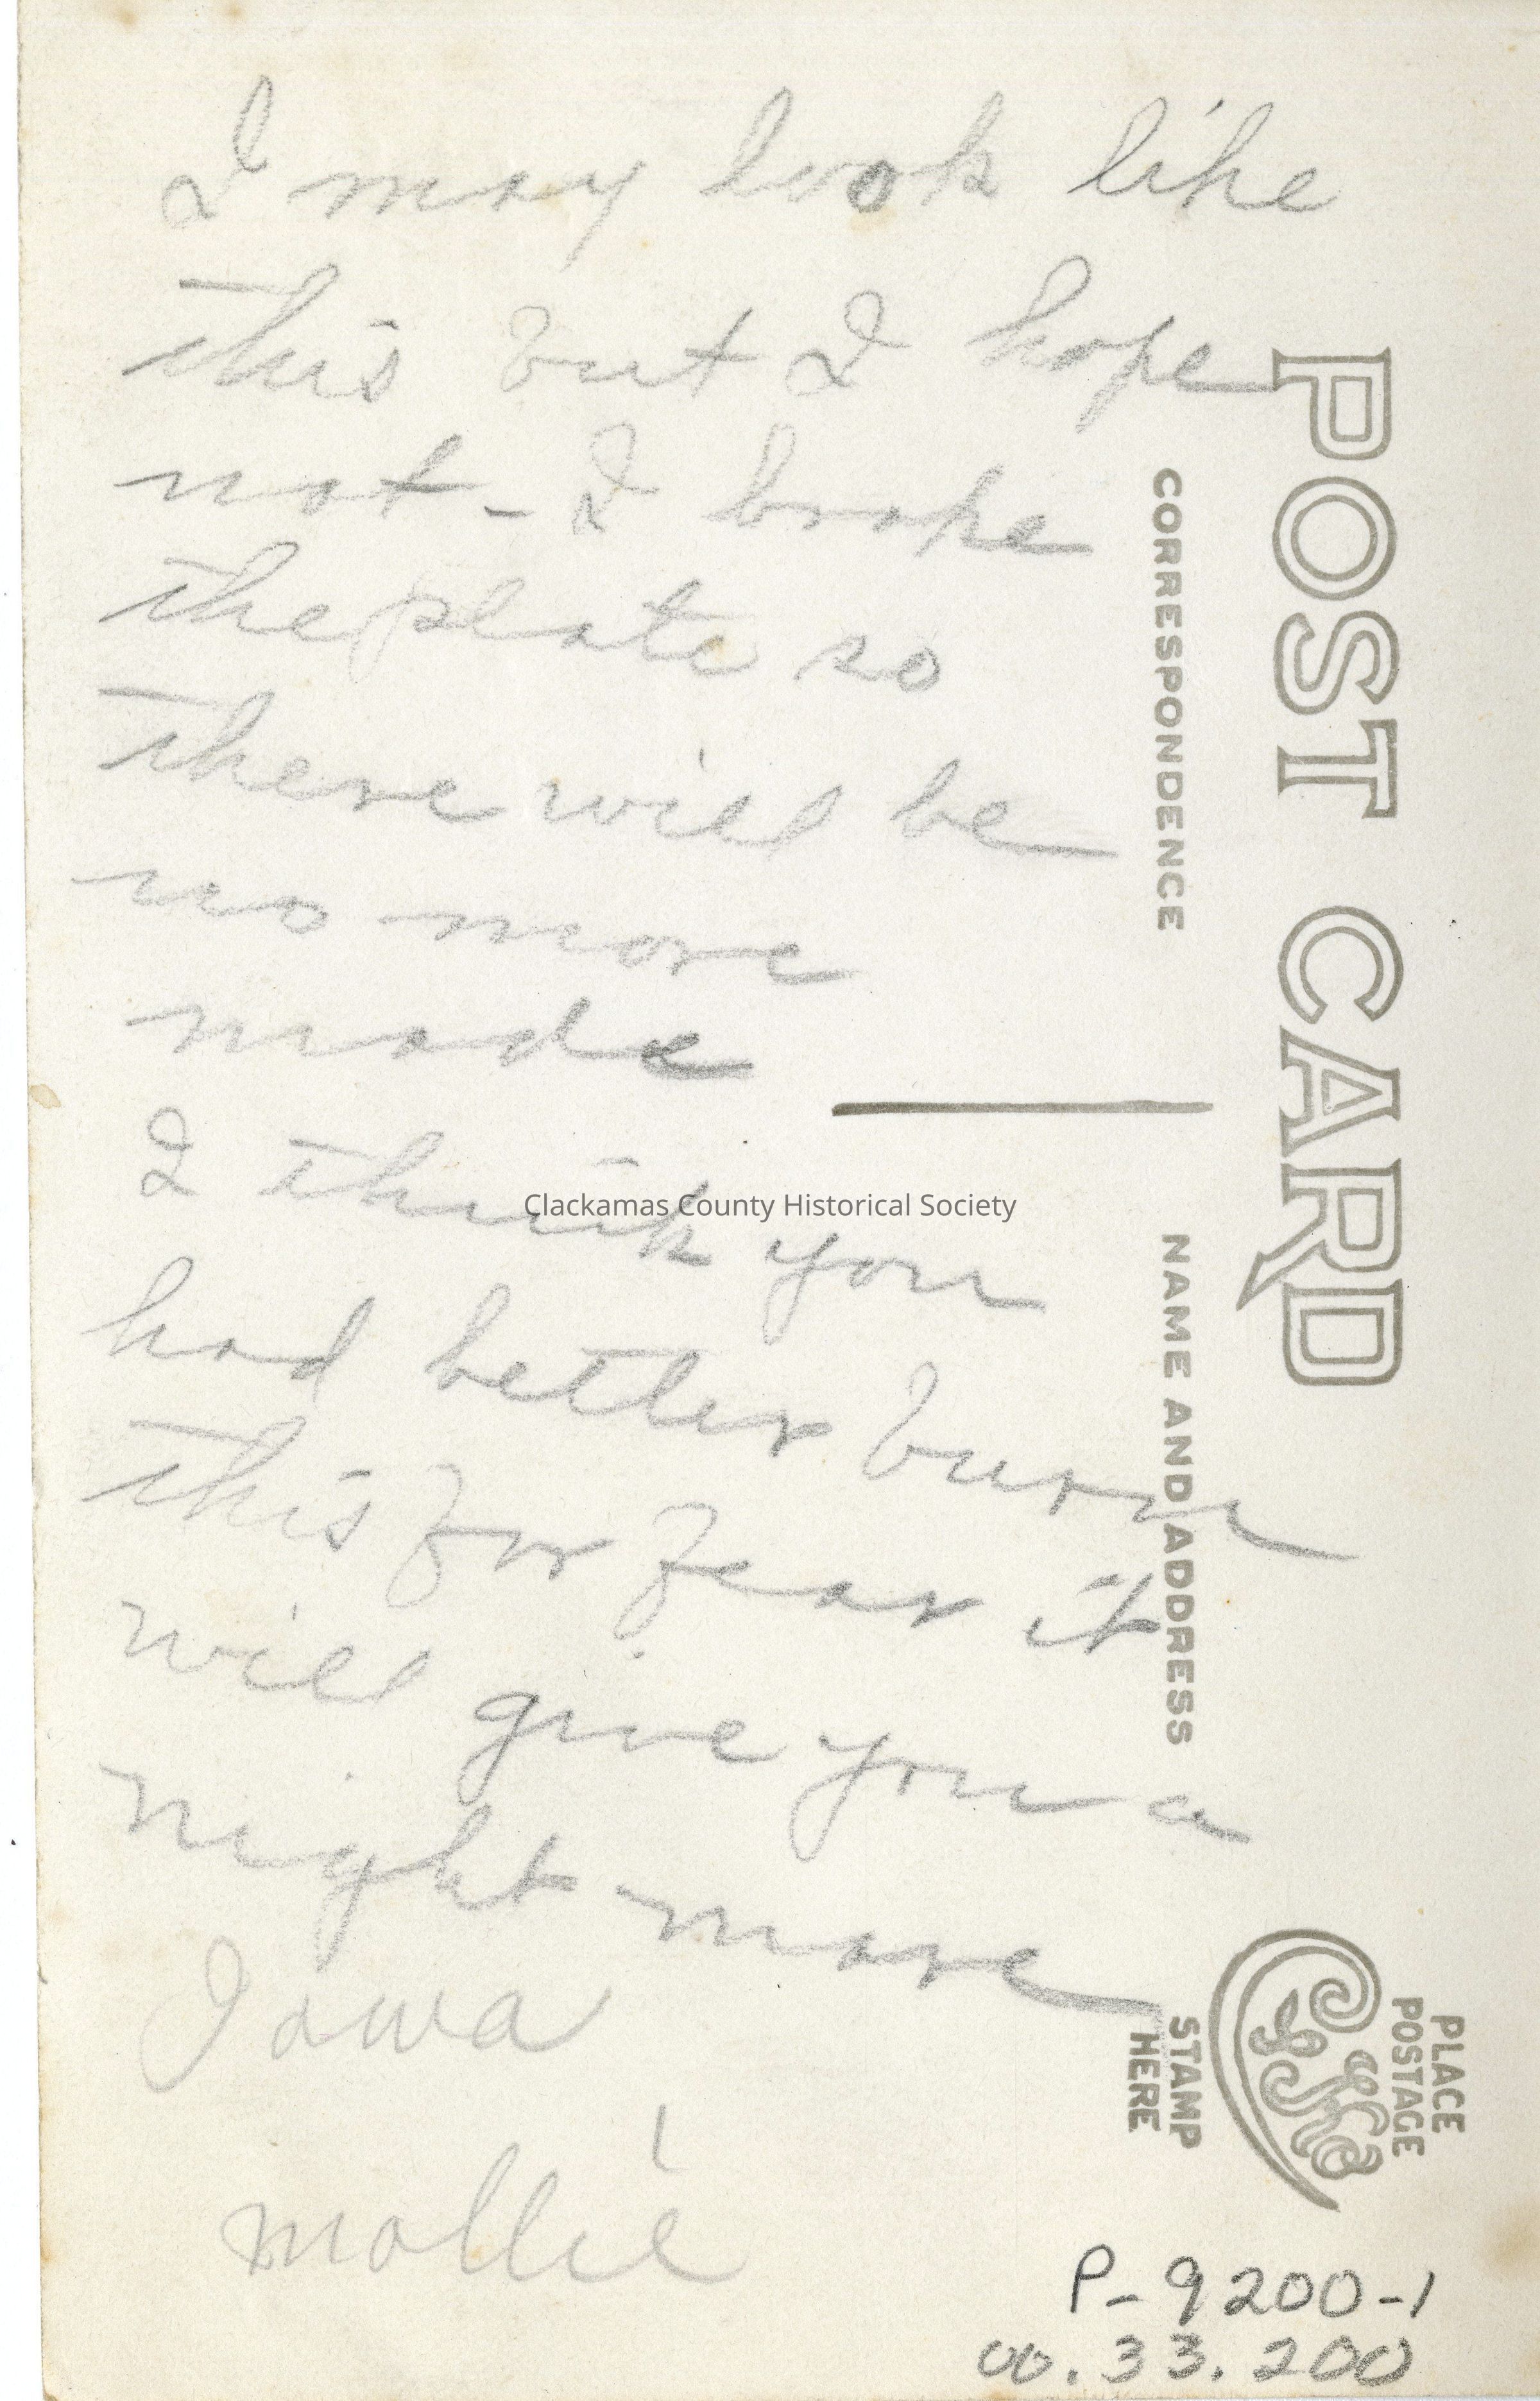 I may look like
this but I hope
not - I broke
the plate so
there will be
no more
made
I think you
had better burn
this for fear it
will give you a
night mare
Iowa
Mollie
POST CARD
CORRESPONDENCE
NAME AND ADDRESS
PLACE
POSTAGE
STAMP
HERE
Clackamas County Historical Society
P-9200-1
00.33.200